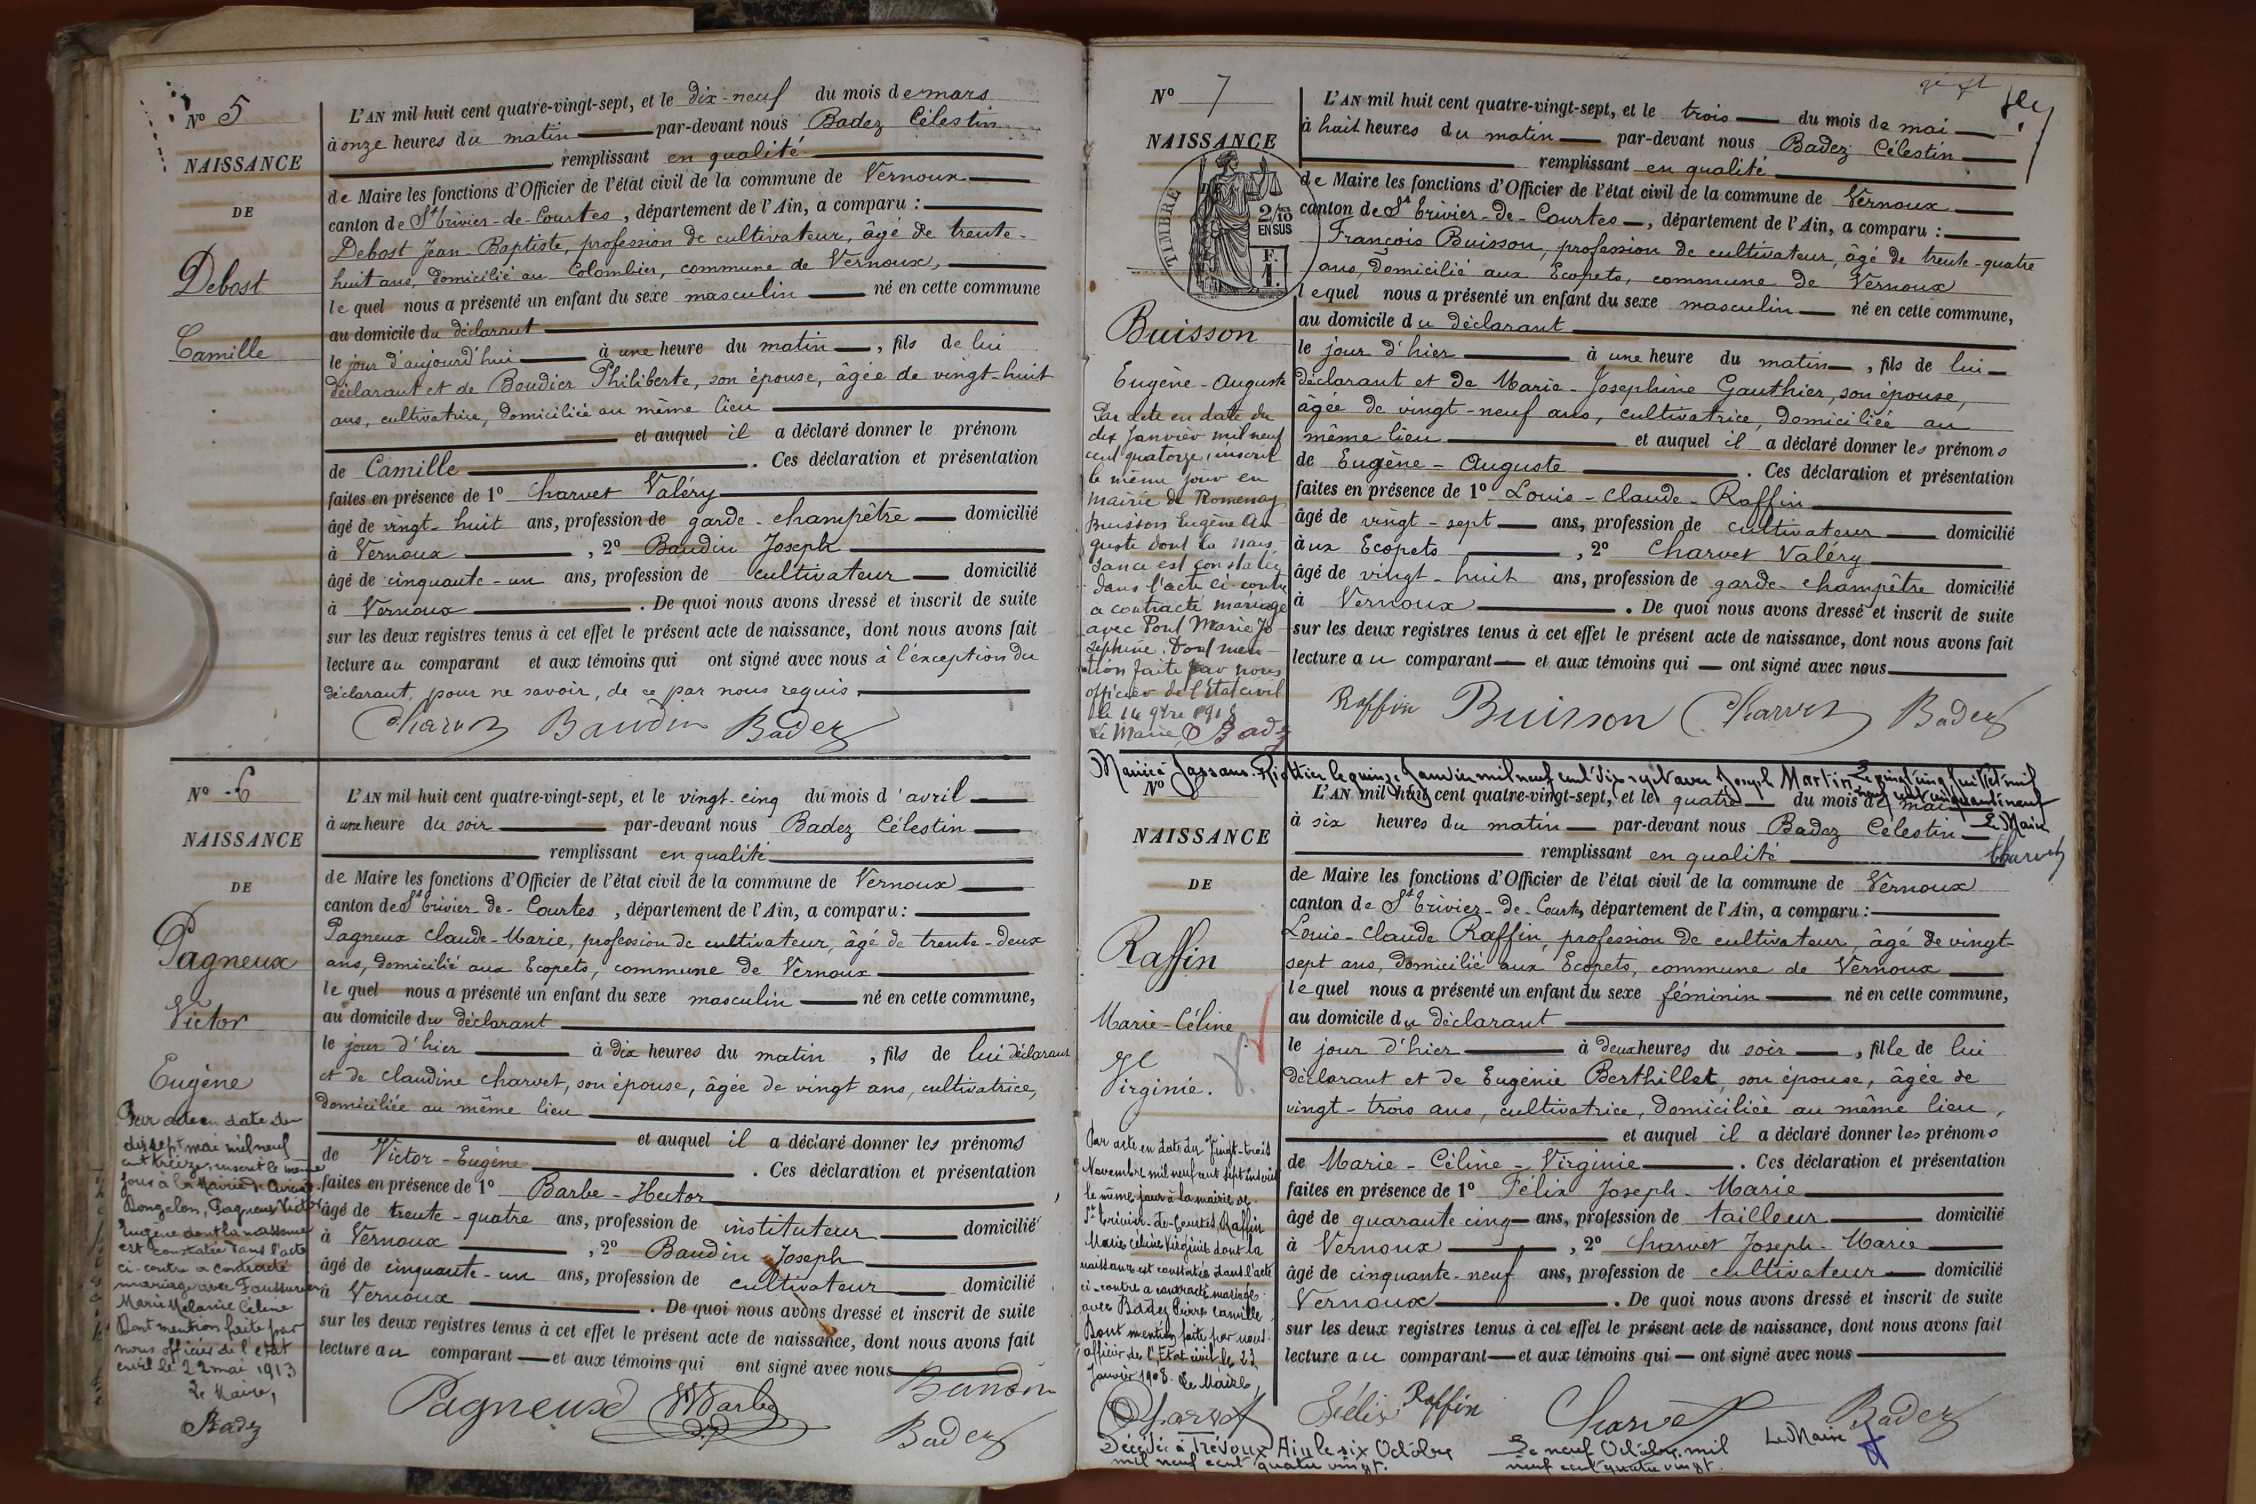 N° 5
NAISSANCE
DE
Debost
Camille
L'AN mil huit cent quatre-vingt-sept, et le dix-neuf du mois de mars
à onze heures du matin par-devant nous Badez Célestin
remplissant en qualité
de Maire les fonctions d'Officier de l'état civil de la commune de Vernoux
canton de St Trivier-de-Courtes, département de l'Ain, a comparu :
Debost Jean-Baptiste, profession de cultivateur, âgé de trente-
huit ans, domicilié au Colombier, commune de Vernoux,
le quel nous a présenté un enfant du sexe masculin né en cette commune
au domicile du déclarant
le jour d'aujourd'hui à une heure du matin, fils de lui
déclarant et de Boudier Philiberte, son épouse, âgée de vingt-huit
ans, cultivatrice, domiciliée au même lieu
et auquel il a déclaré donner le prénom
de Camille. Ces déclaration et présentation
faites en présence de 1° Charvet Valéry
âgé de vingt-huit ans, profession de garde-champêtre domicilié
à Vernoux, 2° Baudin Joseph
âgé de cinquante-un ans, profession de cultivateur domicilié
à Vernoux. De quoi nous avons dressé et inscrit de suite
sur les deux registres tenus à cet effet le présent acte de naissance, dont nous avons fait
lecture au comparant et aux témoins qui ont signé avec nous à l'exception du
déclarant, pour ne savoir, de ce par nous requis.
Charvet Baudin Badez
N° 6
NAISSANCE
DE
Pagneux
Victor
Eugène
Par acte en date du
dix sept mai mil neuf
cent treize, inscrit le même
jour à la Mairie d'Curciat-
Dongalon, Pagneux Victor
Eugène dont la naissance
est constatée dans l'acte
ci-contre a contracté
mariage avec
Marie Mélanie Céline
Dont mention faite par
nous officier de l'état
civil le 22 mai 1913
Le Maire,
Badez
L'AN mil huit cent quatre-vingt-sept, et le vingt-cinq du mois d'avril
à une heure du soir par-devant nous Badez Célestin
remplissant en qualité
de Maire les fonctions d'Officier de l'état civil de la commune de Vernoux
canton de St Trivier-de-Courtes, département de l'Ain, a comparu :
Pagneux Claude-Marie, profession de cultivateur, âgé de trente-deux
ans, domicilié aux Ecopets, commune de Vernoux
le quel nous a présenté un enfant du sexe masculin né en cette commune,
au domicile du déclarant
le jour d'hier à dix heures du matin, fils de lui déclarant
et de Claudine Charvet, son épouse, âgée de vingt ans, cultivatrice,
domiciliée au même lieu
et auquel il a déclaré donner les prénoms
de Victor-Eugène. Ces déclaration et présentation
faites en présence de 1° Barbe-Hector
âgé de trente-quatre ans, profession de instituteur domicilié
à Vernoux, 2° Baudin Joseph
âgé de cinquante-un ans, profession de cultivateur domicilié
à Vernoux. De quoi nous avons dressé et inscrit de suite
sur les deux registres tenus à cet effet le présent acte de naissance, dont nous avons fait
lecture au comparant et aux témoins qui ont signé avec nous
Pagneux Barbe Baudin
Badez
N° 7
NAISSANCE
TIMBRE
2/10 EN SUS
F. 1.
Buisson
Eugène-Auguste
Par acte en date du
dix Janvier mil neuf
cent quatorze, inscrit
le même jour en
mairie de Romenay
Buisson Eugène Au-
guste dont la nais-
sance est constatée
dans l'acte ci-contre
a contracté mariage
avec Pont Marie Jo-
sephine. Dont men-
tion faite par nous
officier de l'Etat civil
Le Maire, Badez
L'AN mil huit cent quatre-vingt-sept, et le trois du mois de mai
à huit heures du matin par-devant nous Badez Célestin
remplissant en qualité
de Maire les fonctions d'Officier de l'état civil de la commune de Vernoux
canton de St Trivier-de-Courtes, département de l'Ain, a comparu :
François Buisson, profession de cultivateur, âgé de trente-quatre
ans, domicilié aux Ecopets, commune de Vernoux
le quel nous a présenté un enfant du sexe masculin né en cette commune,
au domicile du déclarant
le jour d'hier à une heure du matin, fils de lui
déclarant et de Marie-Josephine Gauthier, son épouse,
âgée de vingt-neuf ans, cultivatrice, domiciliée au
même lieu et auquel il a déclaré donner les prénoms
de Eugène-Auguste. Ces déclaration et présentation
faites en présence de 1° Louis-Claude-Raffin
âgé de vingt-sept ans, profession de cultivateur domicilié
aux Ecopets, 2° Charvet Valéry
âgé de vingt-huit ans, profession de garde-champêtre domicilié
à Vernoux. De quoi nous avons dressé et inscrit de suite
sur les deux registres tenus à cet effet le présent acte de naissance, dont nous avons fait
lecture au comparant et aux témoins qui ont signé avec nous
Raffin Buisson Charvet Badez
Mariée à Jassans-Riottier le quinze Janvier mil neuf cent dix sept avec Joseph Martin. Le vingt cinq Juillet mil
neuf cent cinquante neuf
Le Maire
Charvet
N° 8
NAISSANCE
DE
Raffin
Marie-Céline
Virginie.
Par acte en date du vingt-trois
Novembre mil neuf cent sept inscrit
le même jour à la mairie de
St Trivier-de-Courtes, Raffin
Marie Céline Virginie dont la
naissance est constatée dans l'acte
ci-contre a contracté mariage
avec Badez Pierre Camille
Dont mention faite par nous
officier de l'Etat civil le 23
Janvier 1908. Le Maire,
Charvet
L'AN mil huit cent quatre-vingt-sept, et le quatre du mois de mai
à six heures du matin par-devant nous Badez Célestin
remplissant en qualité
de Maire les fonctions d'Officier de l'état civil de la commune de Vernoux
canton de St Trivier-de-Courtes, département de l'Ain, a comparu :
Louis-Claude Raffin, profession de cultivateur, âgé de vingt-
sept ans, domicilié aux Ecopets, commune de Vernoux
le quel nous a présenté un enfant du sexe féminin né en cette commune,
au domicile du déclarant
le jour d'hier à deux heures du soir, fille de lui
déclarant et de Eugénie Berthillet, son épouse, âgée de
vingt-trois ans, cultivatrice, domiciliée au même lieu,
et auquel il a déclaré donner les prénoms
de Marie-Céline-Virginie. Ces déclaration et présentation
faites en présence de 1° Félix Joseph-Marie
âgé de quarante cinq ans, profession de tailleur domicilié
à Vernoux, 2° Charvet Joseph-Marie
âgé de cinquante-neuf ans, profession de cultivateur domicilié
Vernoux. De quoi nous avons dressé et inscrit de suite
sur les deux registres tenus à cet effet le présent acte de naissance, dont nous avons fait
lecture au comparant et aux témoins qui ont signé avec nous
Félix Raffin Charvet Badez
Décédée à Trévoux Ain le six Octobre
mil neuf cent quatre vingt.
Le neuf Octobre mil
neuf cent quatre vingt.
Le Maire